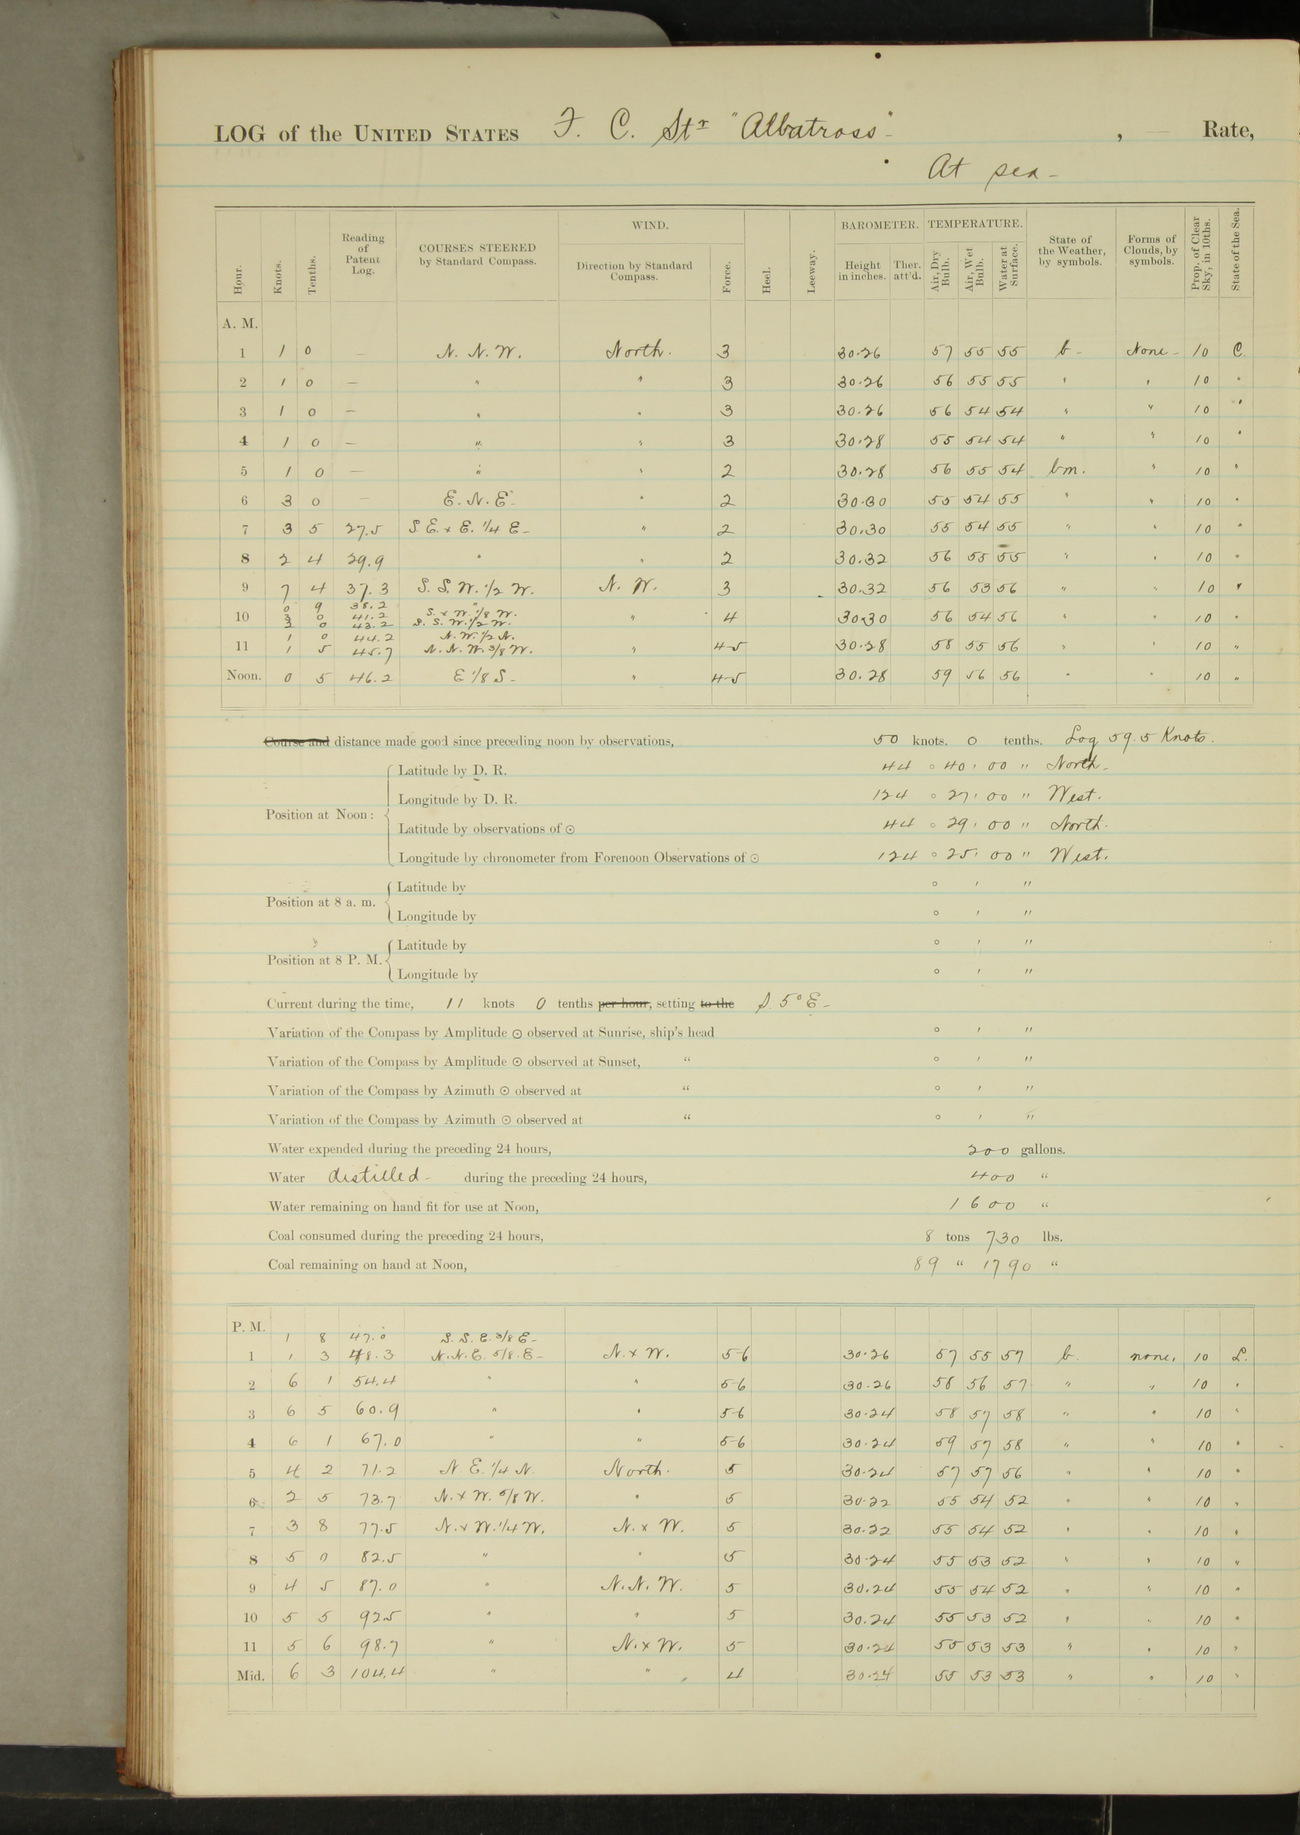 LOG of the UNITED STATES F. C. Str "Albatross" , — Rate,
At sea -
Hour. Knots. Tenths. Reading of Patent Log. COURSES STEERED by Standard Compass. WIND. Direction by Standard Compass. Force. Heel. Leeway. BAROMETER. Height in inches. Ther. att'd. TEMPERATURE. Air, Dry Bulb. Air, Wet Bulb. Water at Surface. State of the Weather, by symbols. Forms of Clouds, by symbols. Prop. of Clear Sky, in 10ths. State of the Sea.
A. M.
1 1 0 — N. N. W. North. 3 30.26 57 55 55 b - None - 10 C.
2 1 0 — " " 3 30.26 56 55 55 " " 10 "
3 1 0 — " " 3 30.26 56 54 54 " " 10 "
4 1 0 — " " 3 30.28 55 54 54 " " 10 "
5 1 0 — " " 2 30.28 56 55 54 bm. " 10 "
6 3 0 — E. N. E. " 2 30.30 55 54 55 " " 10 "
7 3 5 27.5 S E. x E. 1/4 E - " 2 30.30 55 54 55 " " 10 "
8 2 4 29.9 " " 2 30.32 56 55 55 " " 10 "
9 7 4 37.3 S. S. W. 1/2 W. N. W. 3 30.32 56 53 56 " " 10 "
0 9 38.2
10 3 0 41.2 S. x W. 7/8 W. " 4 30.30 56 54 56 " " 10 "
0 43.2 S. S. W. 1/2 W.
1 0 44.2 N. W. 1/2 N.
11 1 5 45.7 N. N. W. 3/8 W. " 4-5 30.28 58 55 56 " " 10 "
Noon. 0 5 46.2 E 1/8 S - " 4-5 30.28 59 56 56 " " 10 "
Course and distance made good since preceding noon by observations, 50 knots. 0 tenths. Log 59.5 Knots.
Position at Noon:
Latitude by D. R. 44 ° 40 ' 00 " North -
Longitude by D. R. 124 ° 27 ' 00 " West.
Latitude by observations of ☉ 44 ° 29 ' 00 " North.
Longitude by chronometer from Forenoon Observations of ☉ 124 ° 25 ' 00 " West.
Position at 8 a. m.
Latitude by ° ' "
Longitude by ° ' "
Position at 8 P. M.
Latitude by ° ' "
Longitude by ° ' "
Current during the time, 11 knots 0 tenths per hour, setting to the S. 5° E -
Variation of the Compass by Amplitude ☉ observed at Sunrise, ship's head ° ' "
Variation of the Compass by Amplitude ☉ observed at Sunset, " ° ' "
Variation of the Compass by Azimuth ☉ observed at " ° ' "
Variation of the Compass by Azimuth ☉ observed at " ° ' "
Water expended during the preceding 24 hours, 200 gallons.
Water distilled - during the preceding 24 hours, 400 "
Water remaining on hand fit for use at Noon, 1600 "
Coal consumed during the preceding 24 hours, 8 tons 730 lbs.
Coal remaining on hand at Noon, 89 " 1790 "
P. M.
1 8 47.0 S. S. E. 3/8 E -
1 1 3 48.3 N. N. E. 5/8 E - N. x W. 5-6 30.26 57 55 57 b. none. 10 L.
2 6 1 54.4 " " 5-6 30.26 58 56 57 " " 10 "
3 6 5 60.9 " " 5-6 30.24 58 57 58 " " 10 "
4 6 1 67.0 " " 5-6 30.24 59 57 58 " " 10 "
5 4 2 71.2 N. E. 1/4 N. North. 5 30.24 57 57 56 " " 10 "
6 2 5 73.7 N. x W. 5/8 W. " 5 30.22 55 54 52 " " 10 "
7 3 8 77.5 N. x W. 1/4 W. N. x W. 5 30.22 55 54 52 " " 10 "
8 5 0 82.5 " " 5 30.24 55 53 52 " " 10 "
9 4 5 87.0 " N. N. W. 5 30.24 55 54 52 " " 10 "
10 5 5 92.5 " " 5 30.24 55 53 52 " " 10 "
11 5 6 98.7 " N. x W. 5 30.24 55 53 53 " " 10 "
Mid. 6 3 104.4 " " 4 30.24 55 53 53 " " 10 "